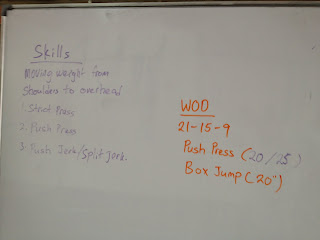 Skills
Moving weight from
Shoulders to overhead
1. Strict Press
2. Push Press
3. Push Jerk/Split Jerk.
WOD
21-15-9
Push Press (20/25)
Box Jump (20")